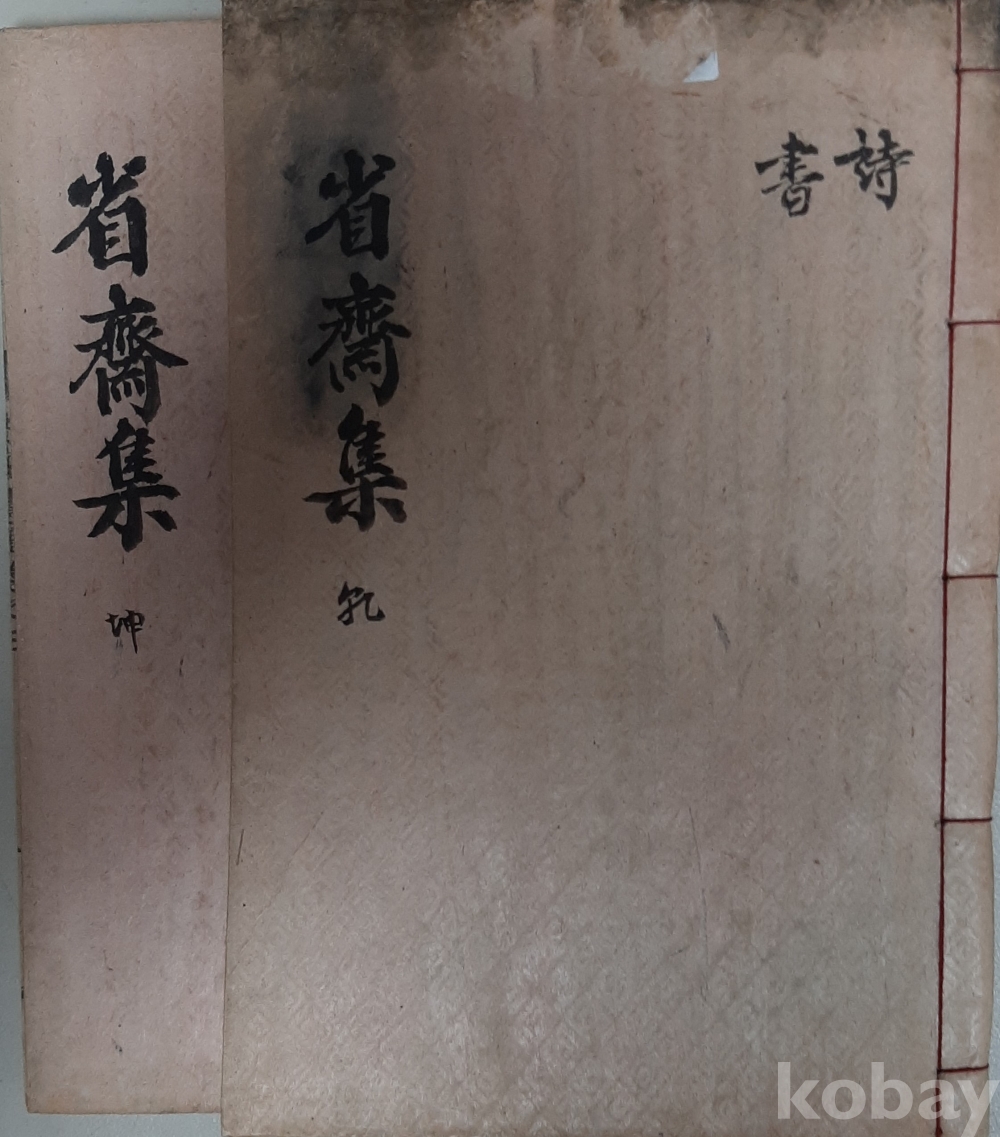 詩
書
省齋集 乹
省齋集 坤
kobay